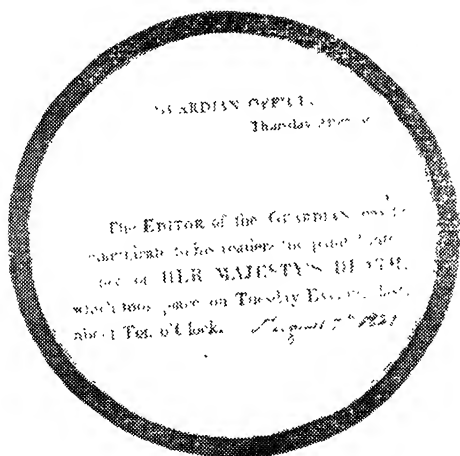 GUARDIAN OFFICE,
Thursday
The EDITOR of the GUARDIAN
communicate to his readers the
of HER MAJESTY'S DEATH,
which took place on Tuesday Evening last,
about Ten o'Clock. August 7th 1821